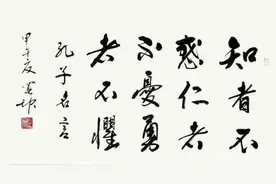 知者不
惑仁者
不憂勇
者不懼
孔子名言
甲午夏